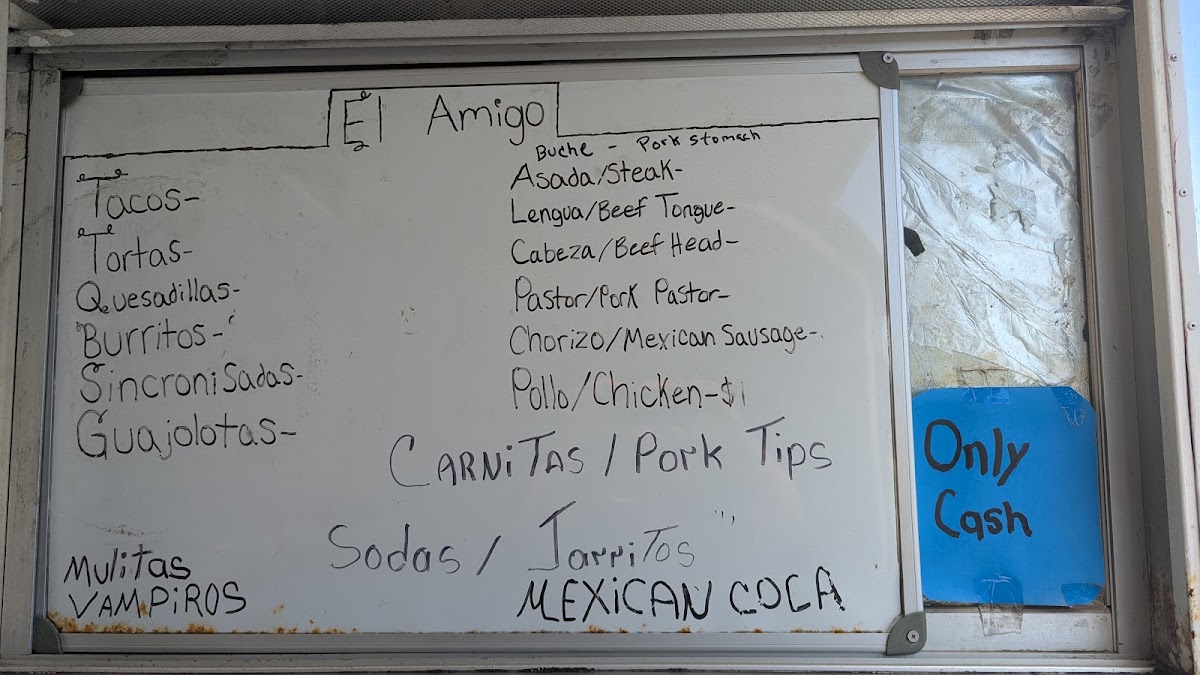 El Amigo
Tacos-
Tortas-
Quesadillas-
Burritos-
Sincronisadas-
Guajolotas-
Mulitas
VAMPIROS
Buche - Pork stomach
Asada/Steak-
Lengua/Beef Tongue-
Cabeza/Beef Head-
Pastor/Pork Pastor-
Chorizo/Mexican Sausage-
Pollo/Chicken-$1
CARNiTAS / Pork Tips
Sodas / JarriTos
MEXiCAN COCA
Only
Cash